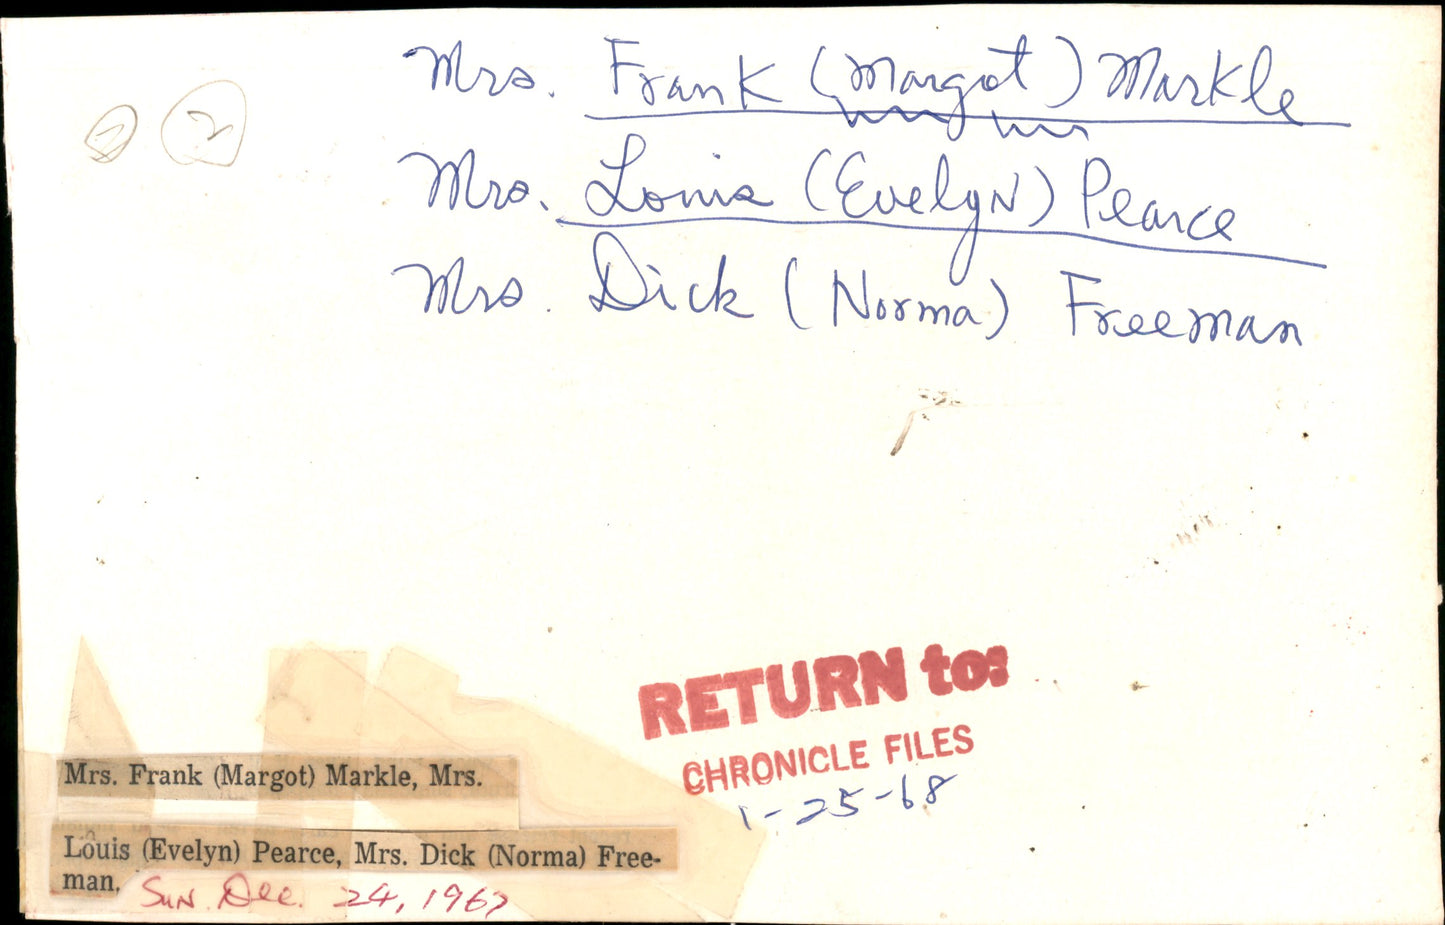 2 2
Mrs. Frank (Margot) Markle
Mrs. Louis (Evelyn) Pearce
Mrs. Dick (Norma) Freeman
RETURN to:
CHRONICLE FILES
1-25-68
Mrs. Frank (Margot) Markle, Mrs.
Louis (Evelyn) Pearce, Mrs. Dick (Norma) Free-
man.
Sun. Dec. 24, 1967